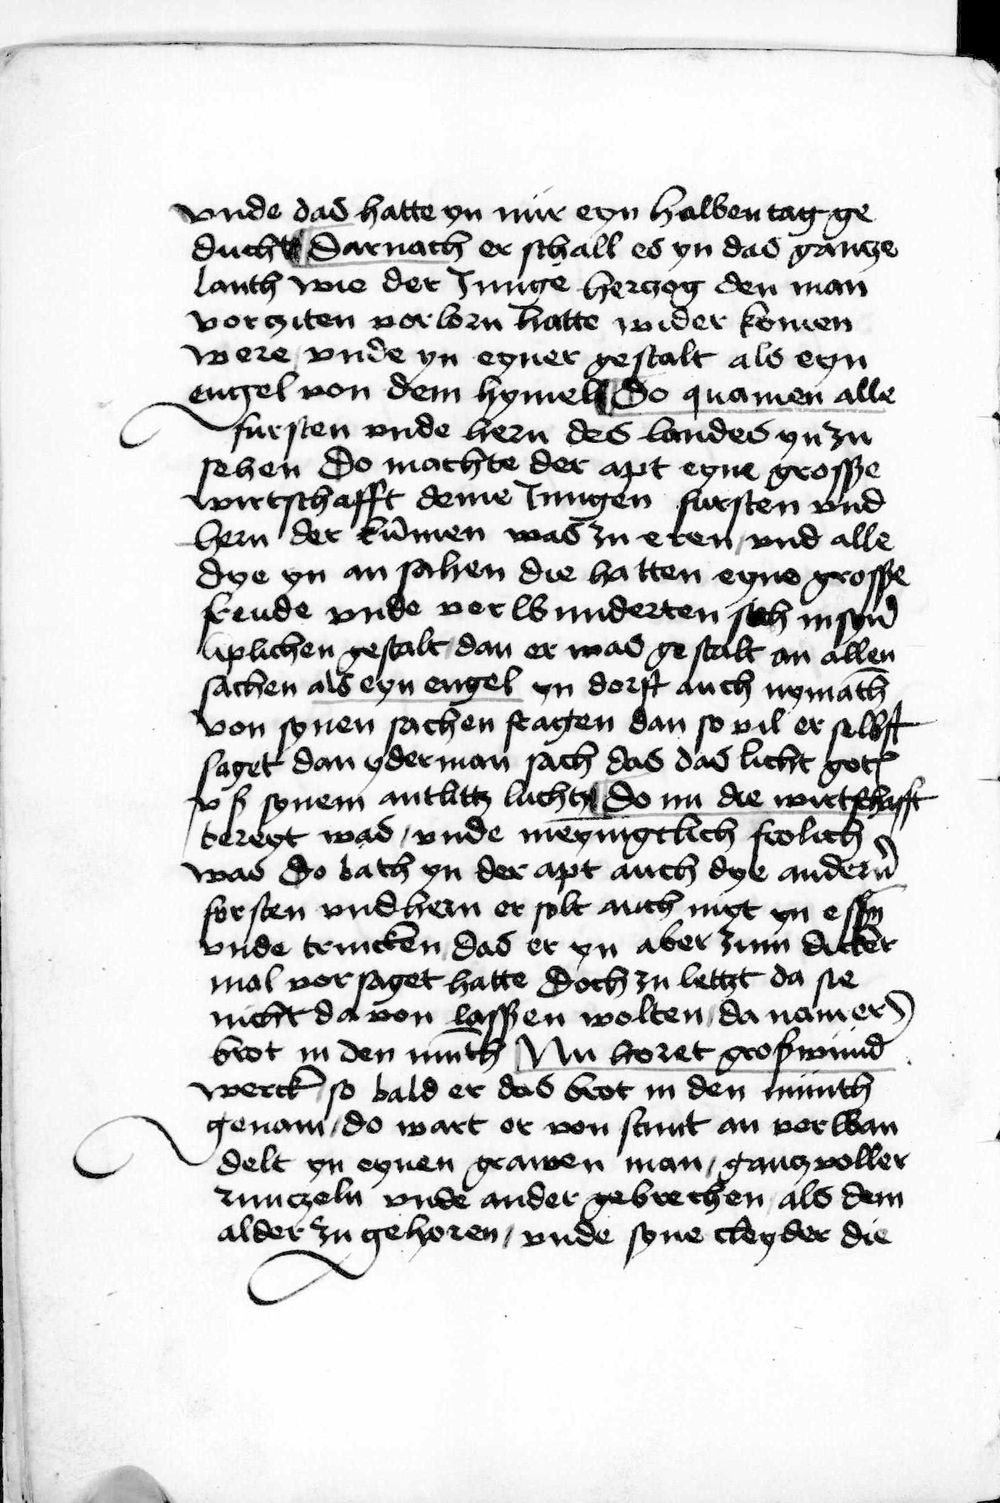 vnde das hatte yn nür eyn halben tag ge
ducht Darnach er schall es yn das gantze
lanth wie der Junge herczog den man
vorcziten vorlorn hatte wider komen
were / vnde yn eyner gestalt als eyn
engel von dem hymel Do quamen alle
fursten vnde hern des landes yn zu
sehen Do machte der apt eyne grosße
wirtschafft deme Jungen fursten vnd
hern der kumen was zu eren / vnd alle
dye yn an sahen die hatten eyne grosße
freude vnde verwunderten sich in syner
liplichen gestalt / dan er was gestalt an allen
sachen als eyn engel yn dorst auch nymāth
von synen sachen fragen dan so vil er selbst
saget dan yderman sach das das licht gots
vß synem antlitz lucht Do nu die wirtschafft
bereyt was / vnde meyngclich frolich
was Do bath yn der apt auch dye andern
forsten vnd hern er solt auch myt yn essen
vnde trincken / das er yn aber zum dicker
mal vorsaget hatte Doch zu letzt da sie
nicht da von lasßen wolten / da nam er
brot in den mūth Nu horet groß wund
werck so bald er das brot in den münth
genam / do wart er von stunt an verwan
delt yn eynen grawen man / gantz voller
runczeln vnde ander gebrechen / als dem
alder zu gehoren / vnde syne cleyder die